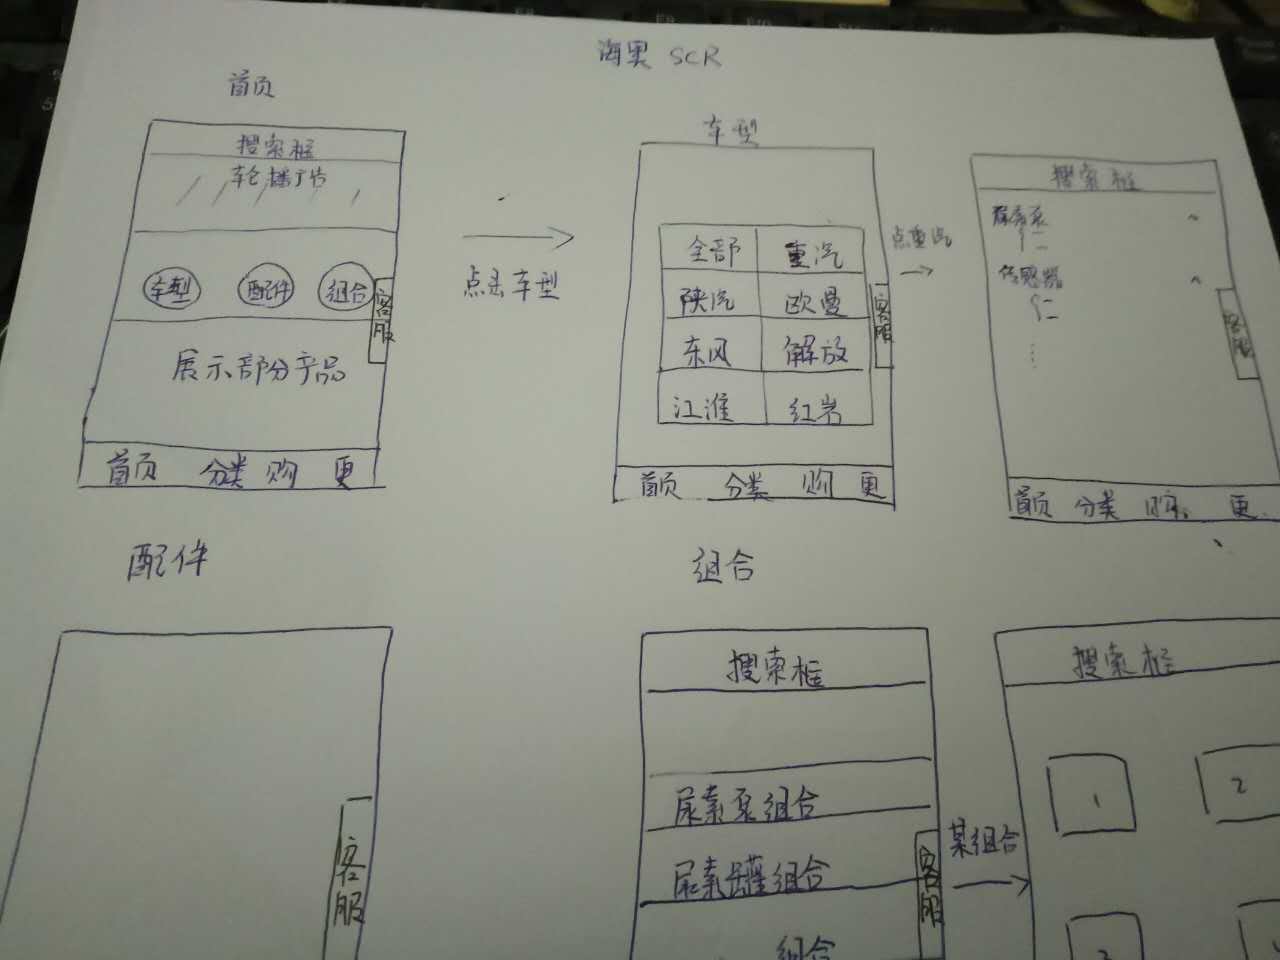 海奥 SCR
首页
搜索框
轮播广告
车型 配件 组合
客服
展示部分产品
首页 分类 购 更
点击车型
车型
全部 重汽
陕汽 欧曼
东风 解放
江淮 红岩
客服
首页 分类 购 更
点重汽
搜索框
尿素泵
传感器
客服
首页 分类 购 更
配件
客服
组合
搜索框
尿素泵组合
尿素罐组合
组合
客服
某组合
搜索框
1 2
3